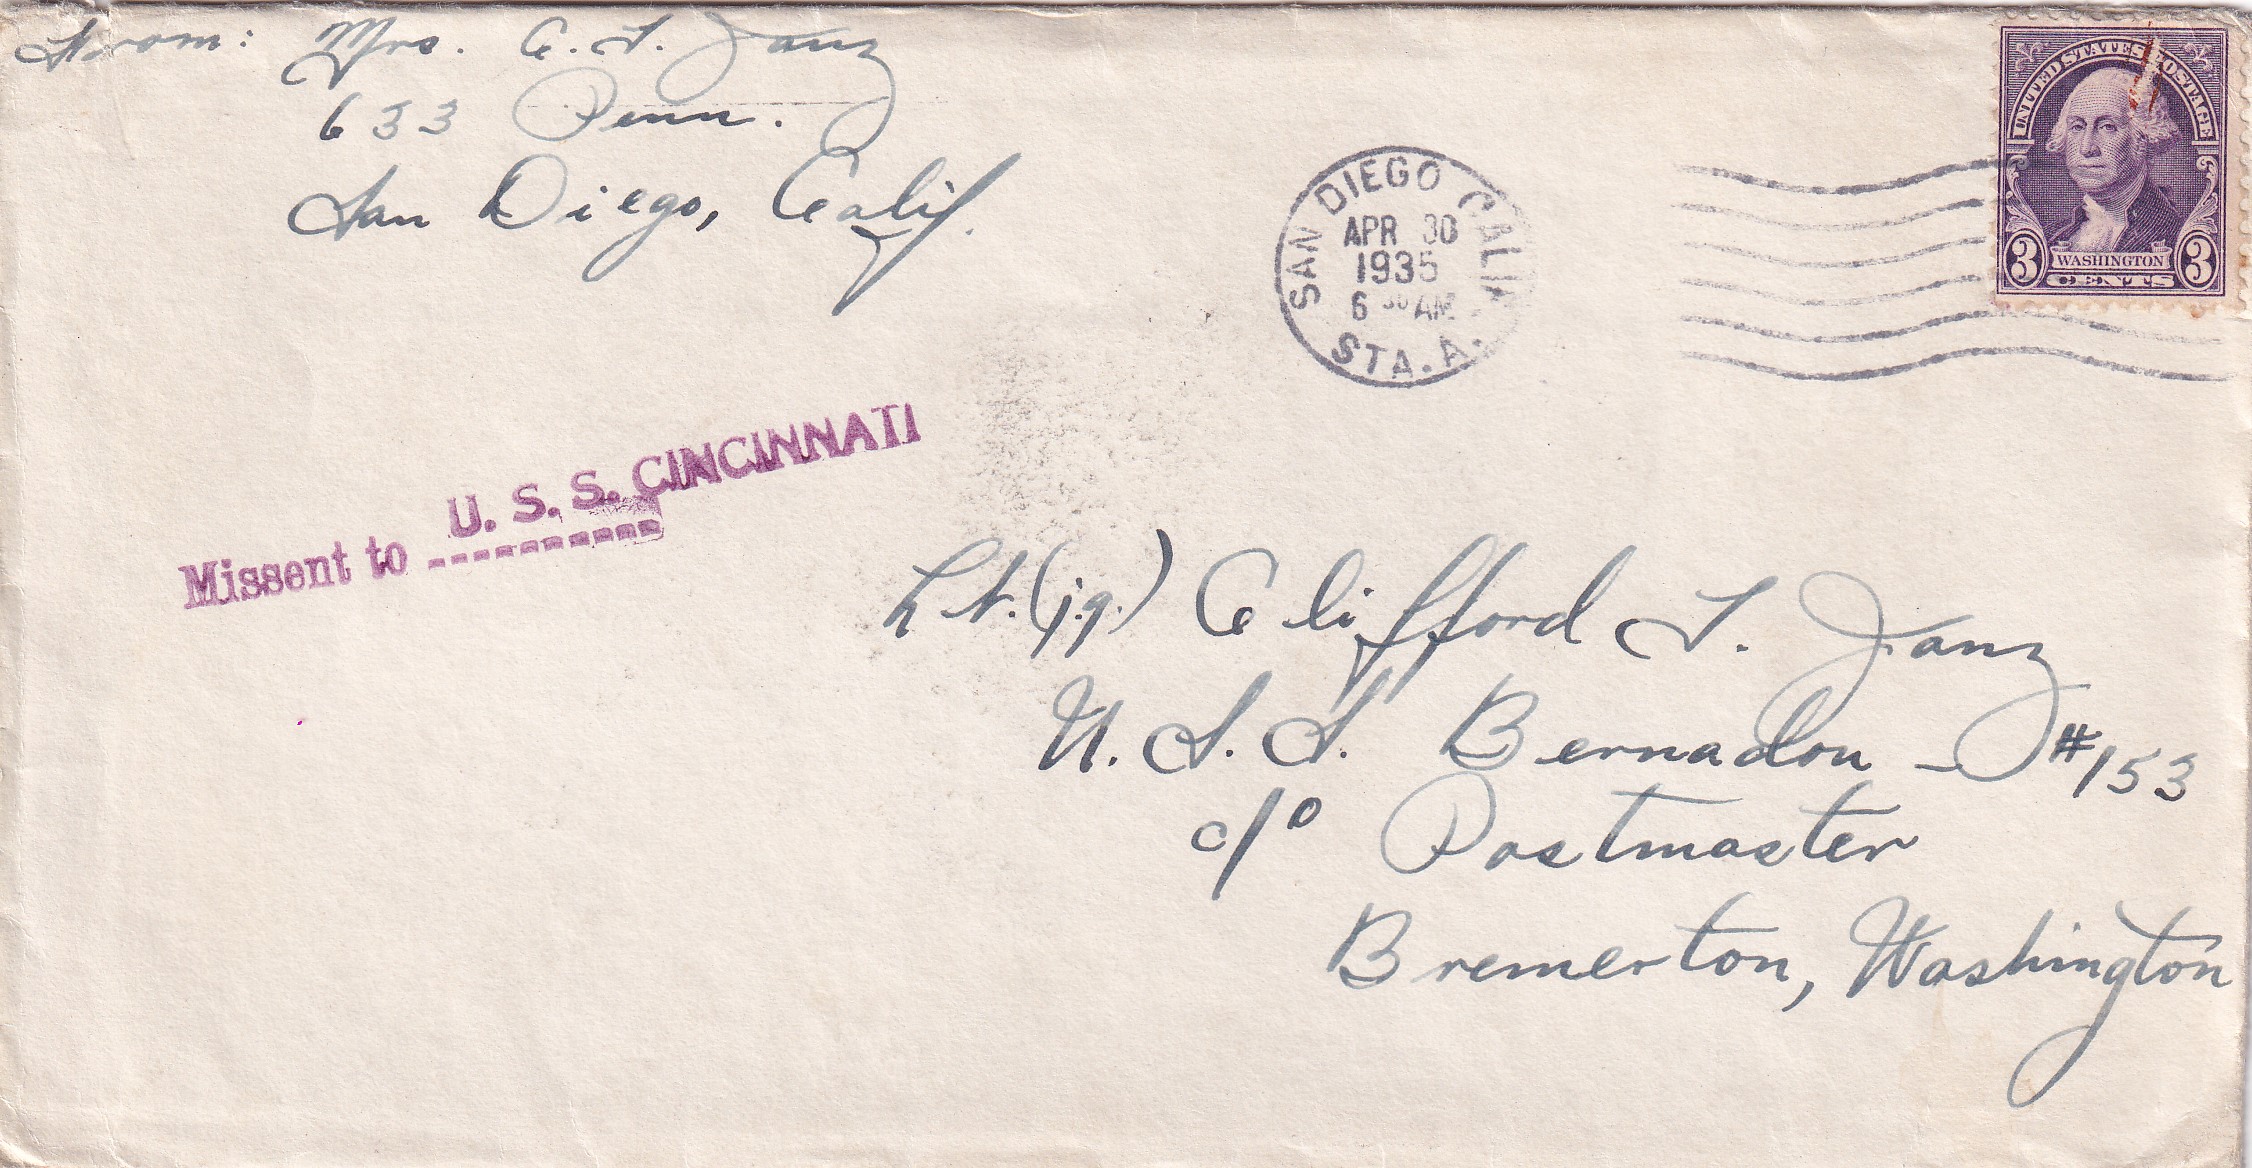 From: Mrs. C. T. Janz
633 Penn.
San Diego, Calif.
SAN DIEGO CALIF.
APR 30
1935
6 30 AM
STA. A.
UNITED STATES POSTAGE
3 WASHINGTON 3
CENTS
U. S. S. CINCINNATI
Missent to ----------
Lt. (j.g.) Clifford T. Janz
U. S. S. Bernadou - #153
c/o Postmaster
Bremerton, Washington